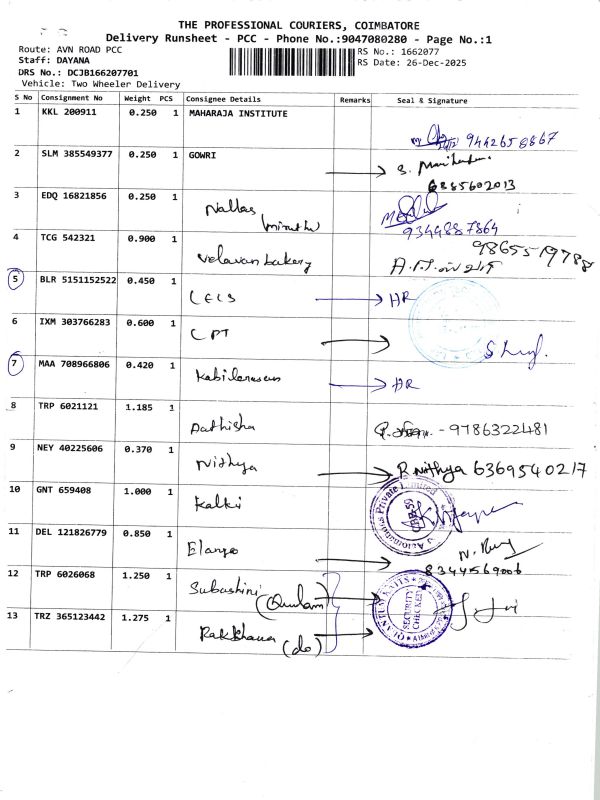 THE PROFESSIONAL COURIERS, COIMBATORE
Delivery Runsheet - PCC - Phone No.:9047080280 - Page No.:1
Route: AVN ROAD PCC
RS No.: 1662077
Staff: DAYANA
RS Date: 26-Dec-2025
DRS No.: DCJB166207701
Vehicle: Two Wheeler Delivery
S No Consignment No Weight PCS Consignee Details Remarks Seal & Signature
1 KKL 200911 0.250 1 MAHARAJA INSTITUTE
9442658867
2 SLM 385549377 0.250 1 GOWRI
3 EDQ 16821856 0.250 1 Nallas
9344887864
4 TCG 542321 0.900 1 Velavan bakery
5 BLR 5151152522 0.450 1 HR
6 IXM 303766283 0.600 1 CPT
7 MAA 708966806 0.420 1 HR
8 TRP 6021121 1.185 1 - 9786322481
9 NEY 40225606 0.370 1 Nithya R Nithya 6369540217
10 GNT 659408 1.000 1 Kalki
11 DEL 121826779 0.850 1 Elango
8344569006
12 TRP 6026068 1.250 1 Subashini
SECURITY CHECKED
13 TRZ 365123442 1.275 1
(do)